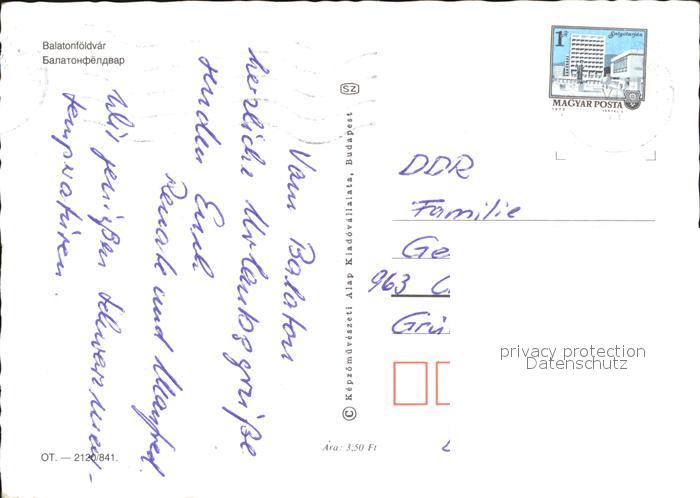 Balatonföldvár
Балатонфёлдвар
Vom Balaton
herzliche Urlaubsgrüße
senden Euch
Renate und Manfred
Wir genießen Schwarzmeer-
temperaturen.
OT. — 2120/841.
Ára: 3,50 Ft
© Képzőművészeti Alap Kiadóvállalata, Budapest
SZ
1 Ft
Salgótarján
MAGYAR POSTA
1973
DDR
Familie
Ge
963
Grü
privacy protection
Datenschutz